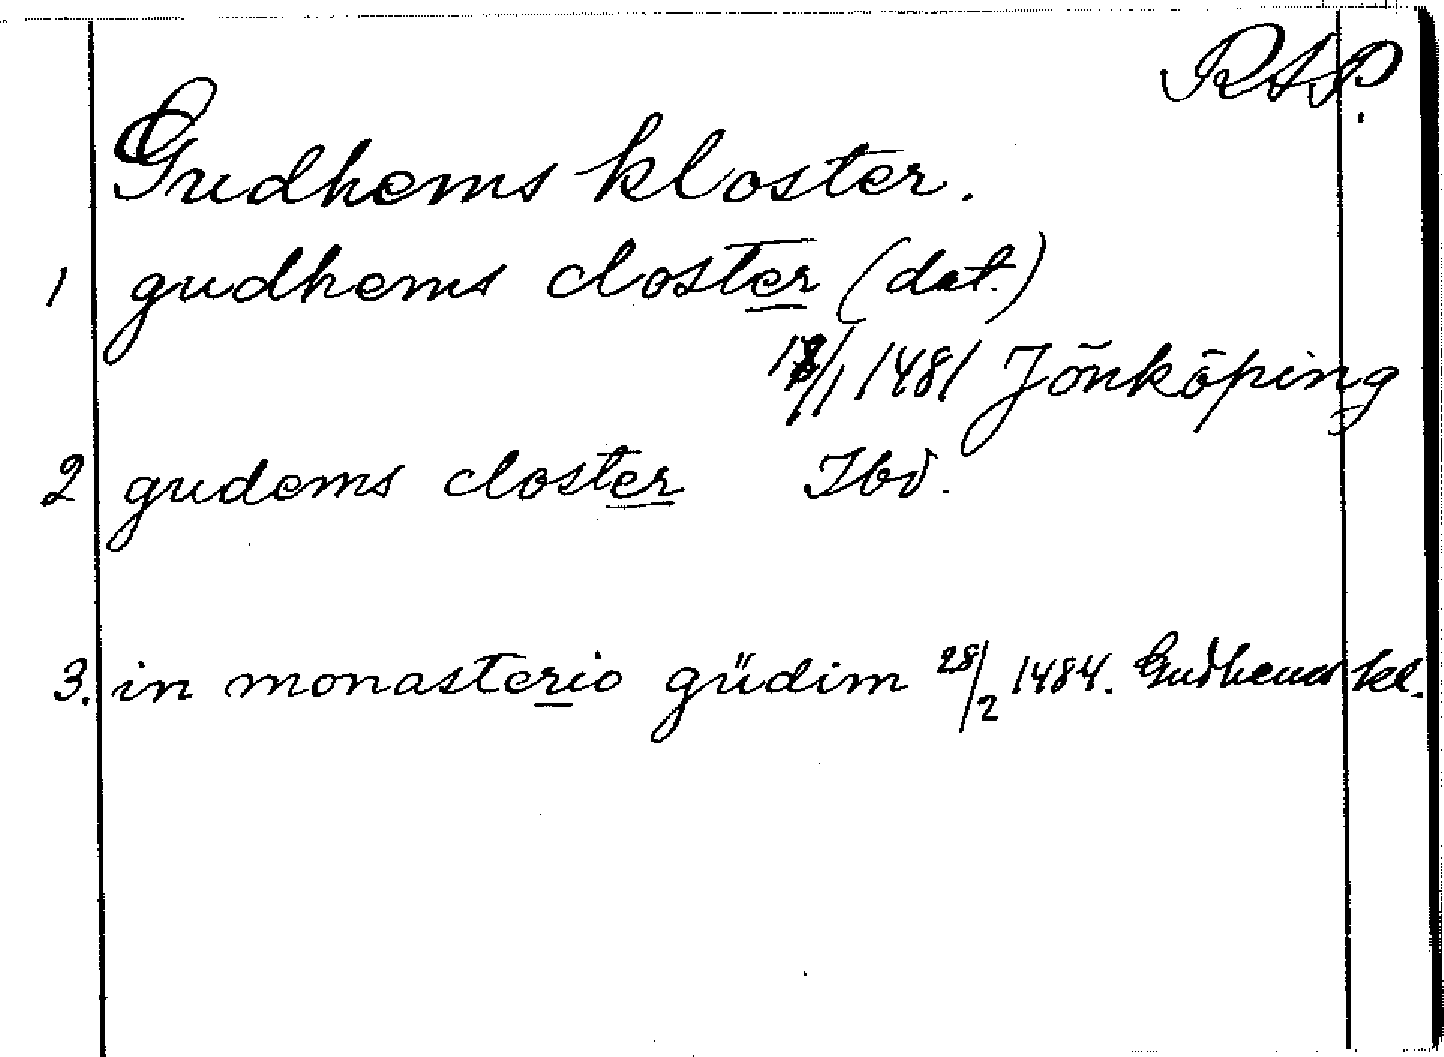 RAP.
Gudhems kloster.
1 gudhems closter (dat.)
/1 1481 Jönköping
2 gudems closter Ibd.
3. in monasterio güdim 28/2 1484. Gudhems kl.